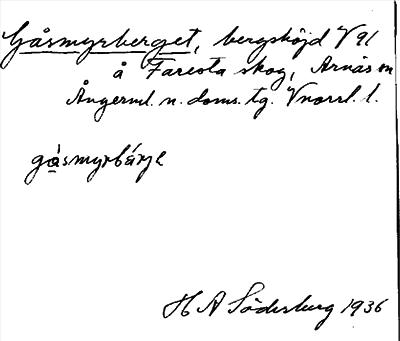 Gåsmyrberget, bergshöjd V 91
å Fareota skog, Arnäs sn
Ångerml. n. doms. tg. Vnorrl. l.
gåsmyrbärje
H A Söderberg 1936